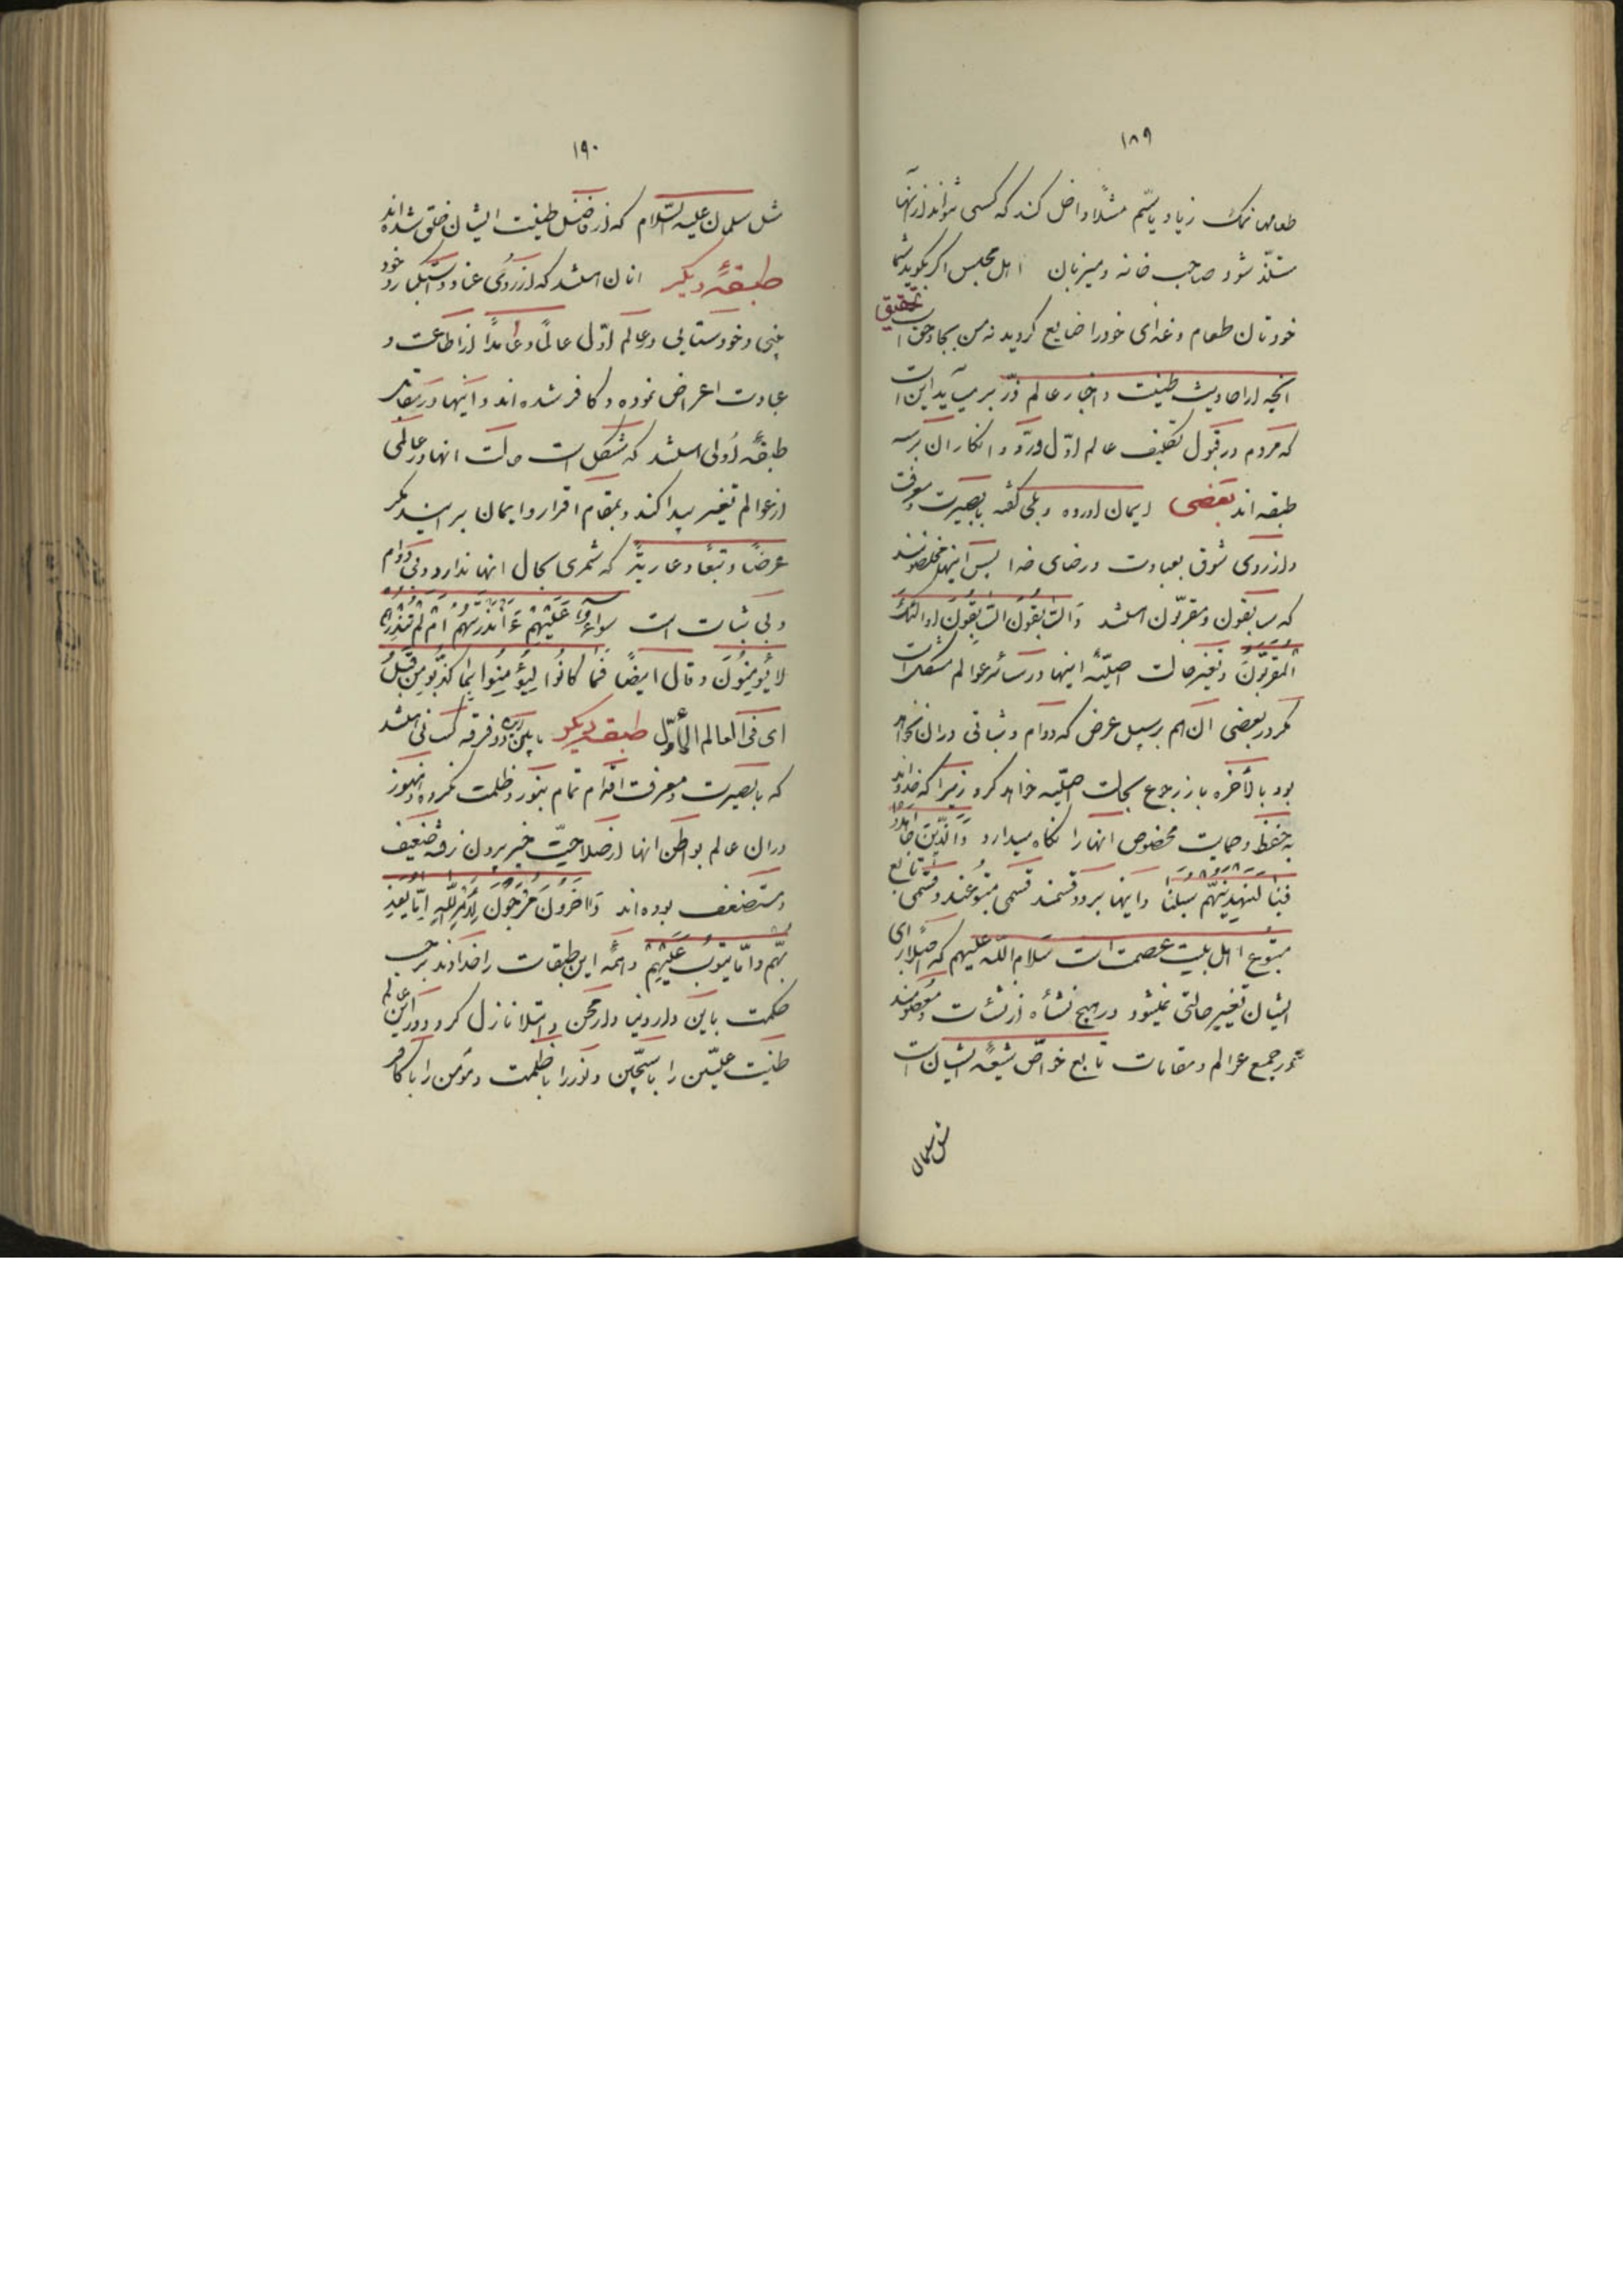 ١٨٩
طعامها نمک زیاد یا سم مثلا داخل کند که کسی نتواند از آنها
متلذذ شود صاحب خانه و میزبان اهل مجلس اگر بگوید شما
خودتان طعام و غذای خود را ضایع کردید نه من بجا و حق است
تحقیق
آنچه از احادیث طینت و اخبار عالم ذر بر میآید این است
که مردم در قبول تکلیف عالم اول و رد و انکار آن بر سه
طبقه اند بعضی ایمان آورده و بلی گفته با بصیرت و معرفت
و از روی شوق بعبادت و رضای خدا پس اینها مخلصونند
که سابقون و مقربون باشند وَالسّابِقُونَ السّابِقُونَ اولئکَ
المُقَرَّبُونَ و تغیر حالت اصلیّه اینها در سائر عوالم مشکل است
مگر در بعضی آن هم بر سبیل عرض که دوام و ثباتی در آن نخواهد
بود بالأخره باز رجوع بحالت اصلیّه خواهد کرد زیرا که خداوند
به حفظ و حمایت مخصوص آنها را نگاه میدارد وَالَّذینَ جاهَدُوا
فینا لَنَهْدِیَنَّهُمْ سُبُلَنا و اینها بر دو قسمند قسمی متبوعند و قسمی تابع
متبوع اهل بیت عصمت است سلام اللّه علیهم که اصلا برای
ایشان تغییر حالتی نمیشود در هیچ نشأه از نشئات و معصومند
در جمیع عوالم و مقامات تابع خواصّ شیعهٔ ایشان است
مثل سلمان
١٩٠
مثل سلمان علیه السّلام که از فاضل طینت ایشان خلق شده اند
طبقهٔ دیگر آنان باشند که از روی عناد و استکبار و خود
بینی و خودستایی در عالم اوّل عالمًا و عامدًا از اطاعت و
عبادت اعراض نموده و کافر شده اند و اینها در مقابل
طبقهٔ اُولی باشند که مشکل است حالت آنها در عالمی
از عوالم تغییر پیدا کند و بمقام اقرار و ایمان برسند مگر
عرضًا و تبعًا و عاریةً که ثمری بحال آنها ندارد و بی دوام
و بی ثبات است سواءٌ عَلَیْهِمْ ءَاَنْذَرْتَهُمْ اَمْ لَمْ تُنْذِرْهُمْ
لا یُؤمِنُونَ و قال ایضًا فَما کانُوا لِیُؤمِنُوا بِما کَذَّبُوا مِنْ قَبْلُ
ای فی العالم الأوّل طبقه دیگر مابین این دو فرقه کسانی باشند
که با بصیرت و معرفت اقدام تمام بنور و ظلمت نکرده و هنوز
در آن عالم بواطن آنها از صلاحیّت خیر بیرون نرفته ضعیف
و مستضعف بوده اند وَآخَرُونَ مُرْجَوْنَ لِاَمْرِ اللّهِ اِمّا یُعَذِّ
بُهُمْ وَاِمّا یَتُوبُ عَلَیْهِمْ و همهٔ این طبقات را خداوند بر حسب
حکمت باین دار دنیا و دار محن و ابتلا نازل کرد و در این عالم
طینت علیّین را با سجّین و نور را با ظلمت و مؤمن را با کافر